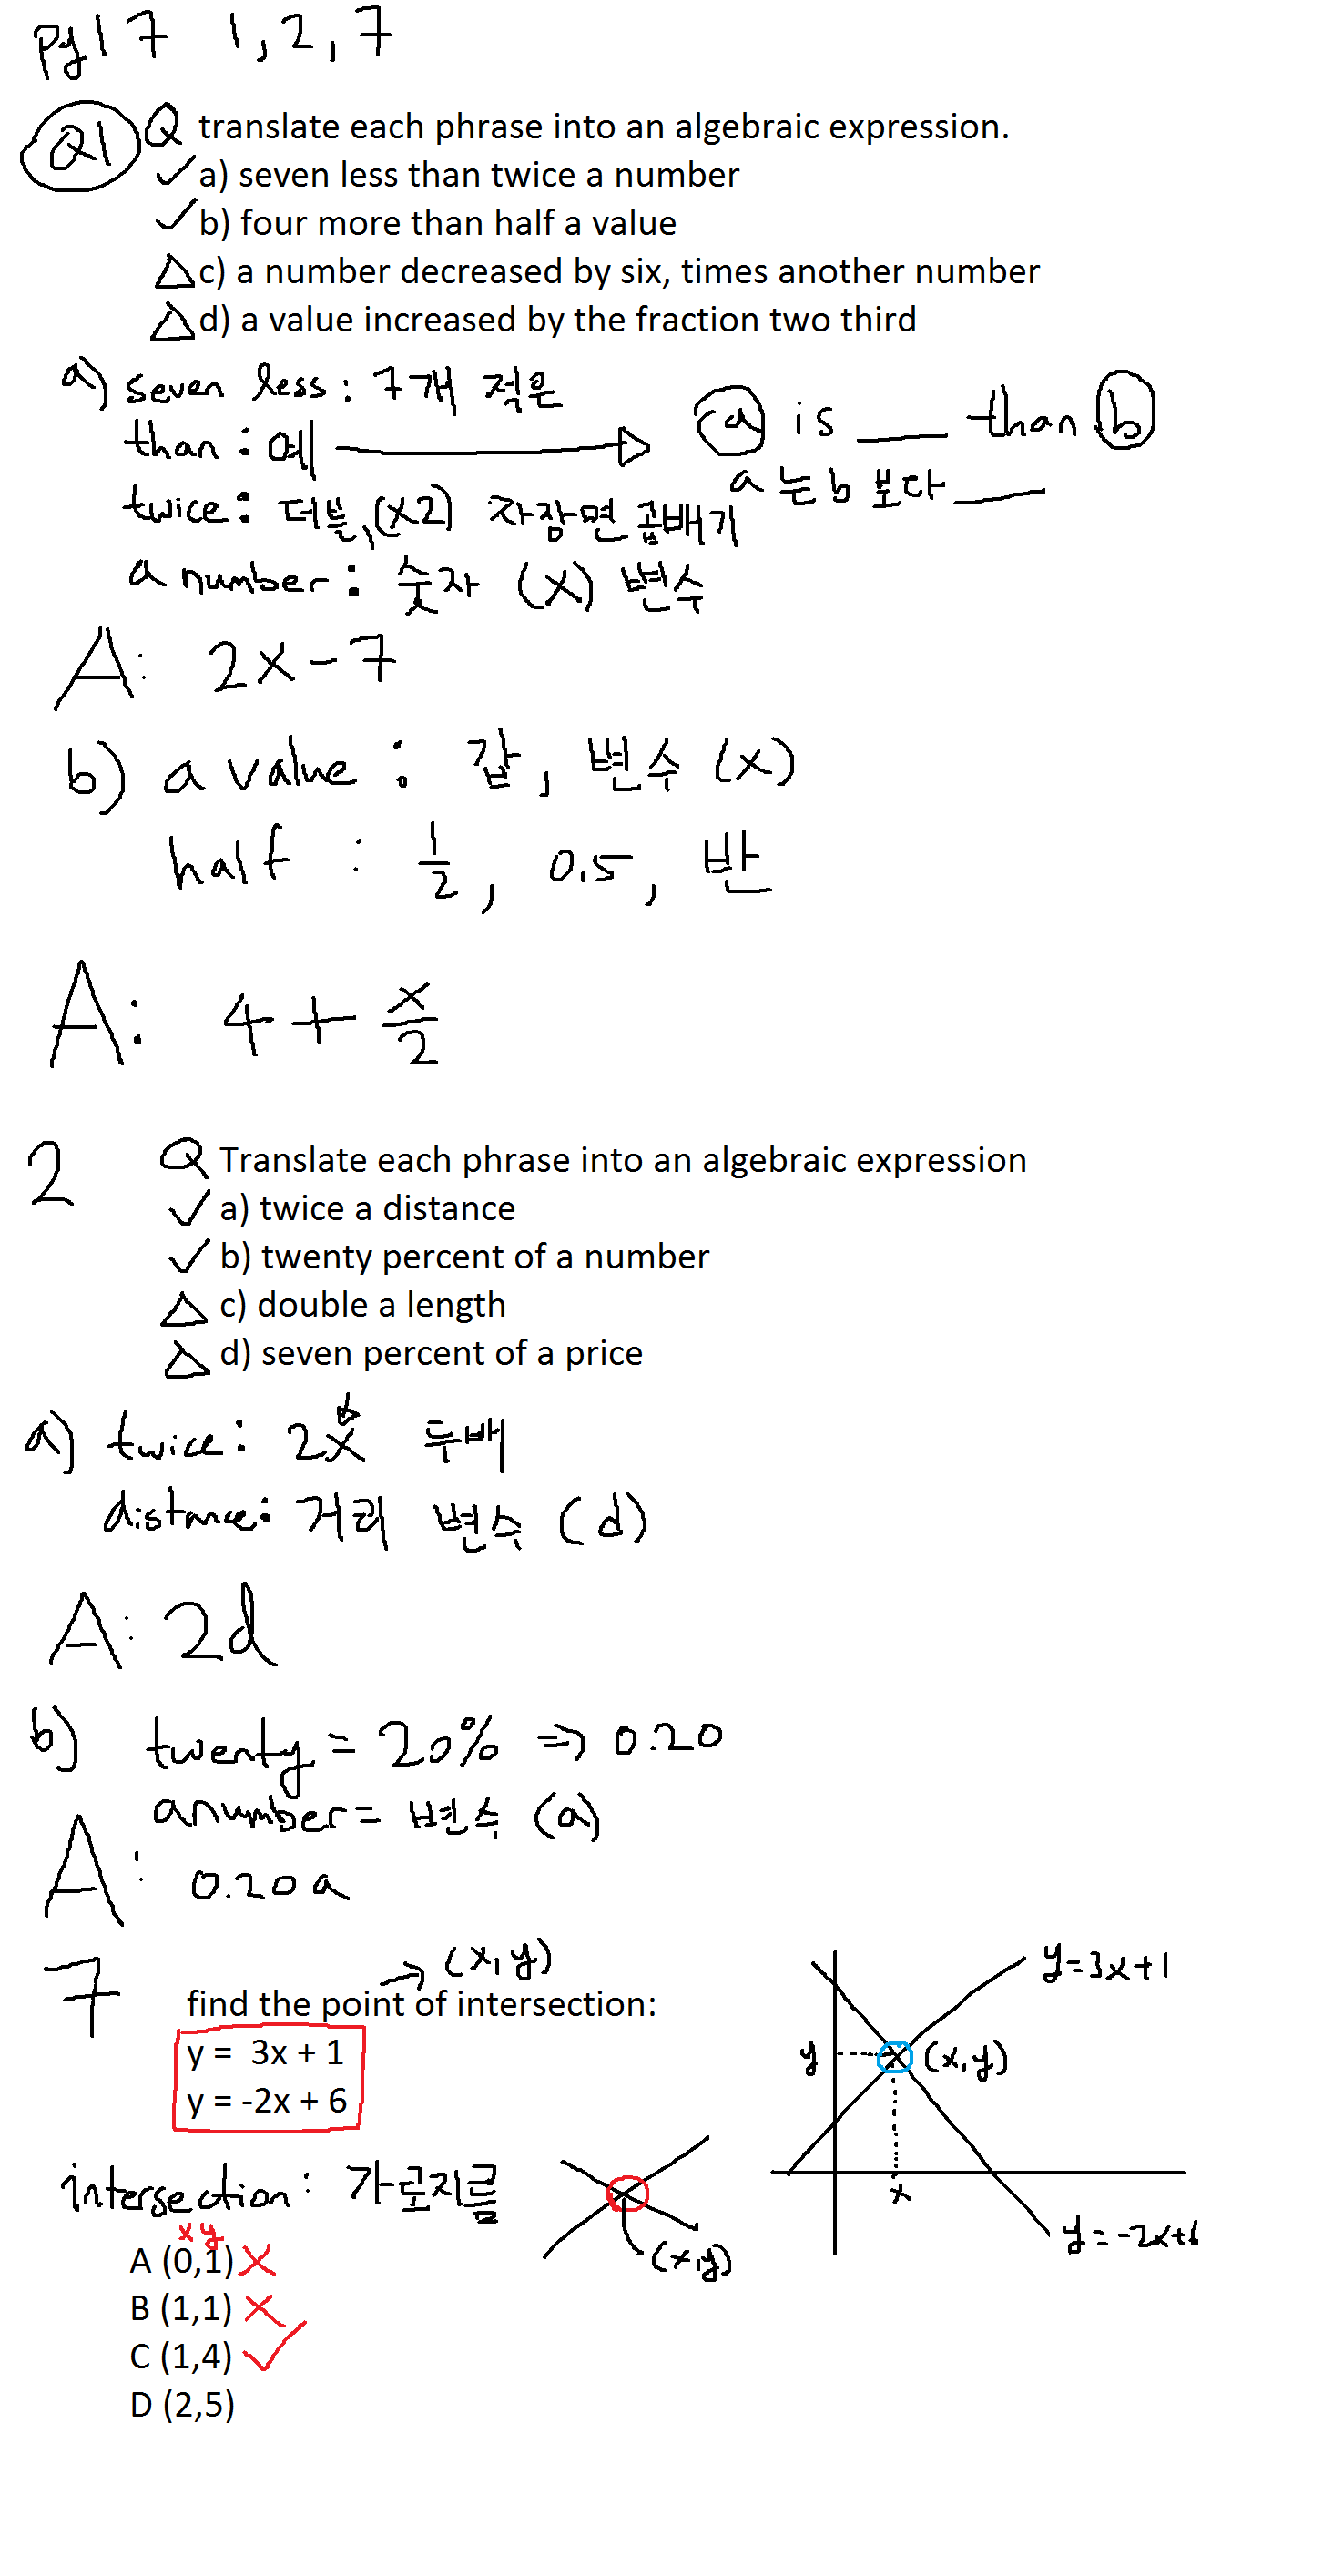 pg 17 1, 2, 7
Q1 Q translate each phrase into an algebraic expression.
a) seven less than twice a number
b) four more than half a value
c) a number decreased by six, times another number
d) a value increased by the fraction two third
a) seven less : 7개 적은
than : 에
a is ___ than b
a 는 b 보다 ___
twice : 더블, (x2) 자장면 곱배기
a number : 숫자 (x) 변수
A: 2x-7
b) a value : 값, 변수 (x)
half : 1/2, 0.5, 반
A: 4 + x/2
2 Q Translate each phrase into an algebraic expression
a) twice a distance
b) twenty percent of a number
c) double a length
d) seven percent of a price
a) twice : 2x 두배
distance : 거리 변수 (d)
A: 2d
b) twenty = 20% => 0.20
a number = 변수 (a)
A: 0.20a
7 → (x, y)
find the point of intersection:
y = 3x + 1
y = -2x + 6
y=3x+1
y (x, y)
x
y = -2x+6
intersection : 가로지름
(x,y)
x y
A (0,1) X
B (1,1) X
C (1,4) ✓
D (2,5)